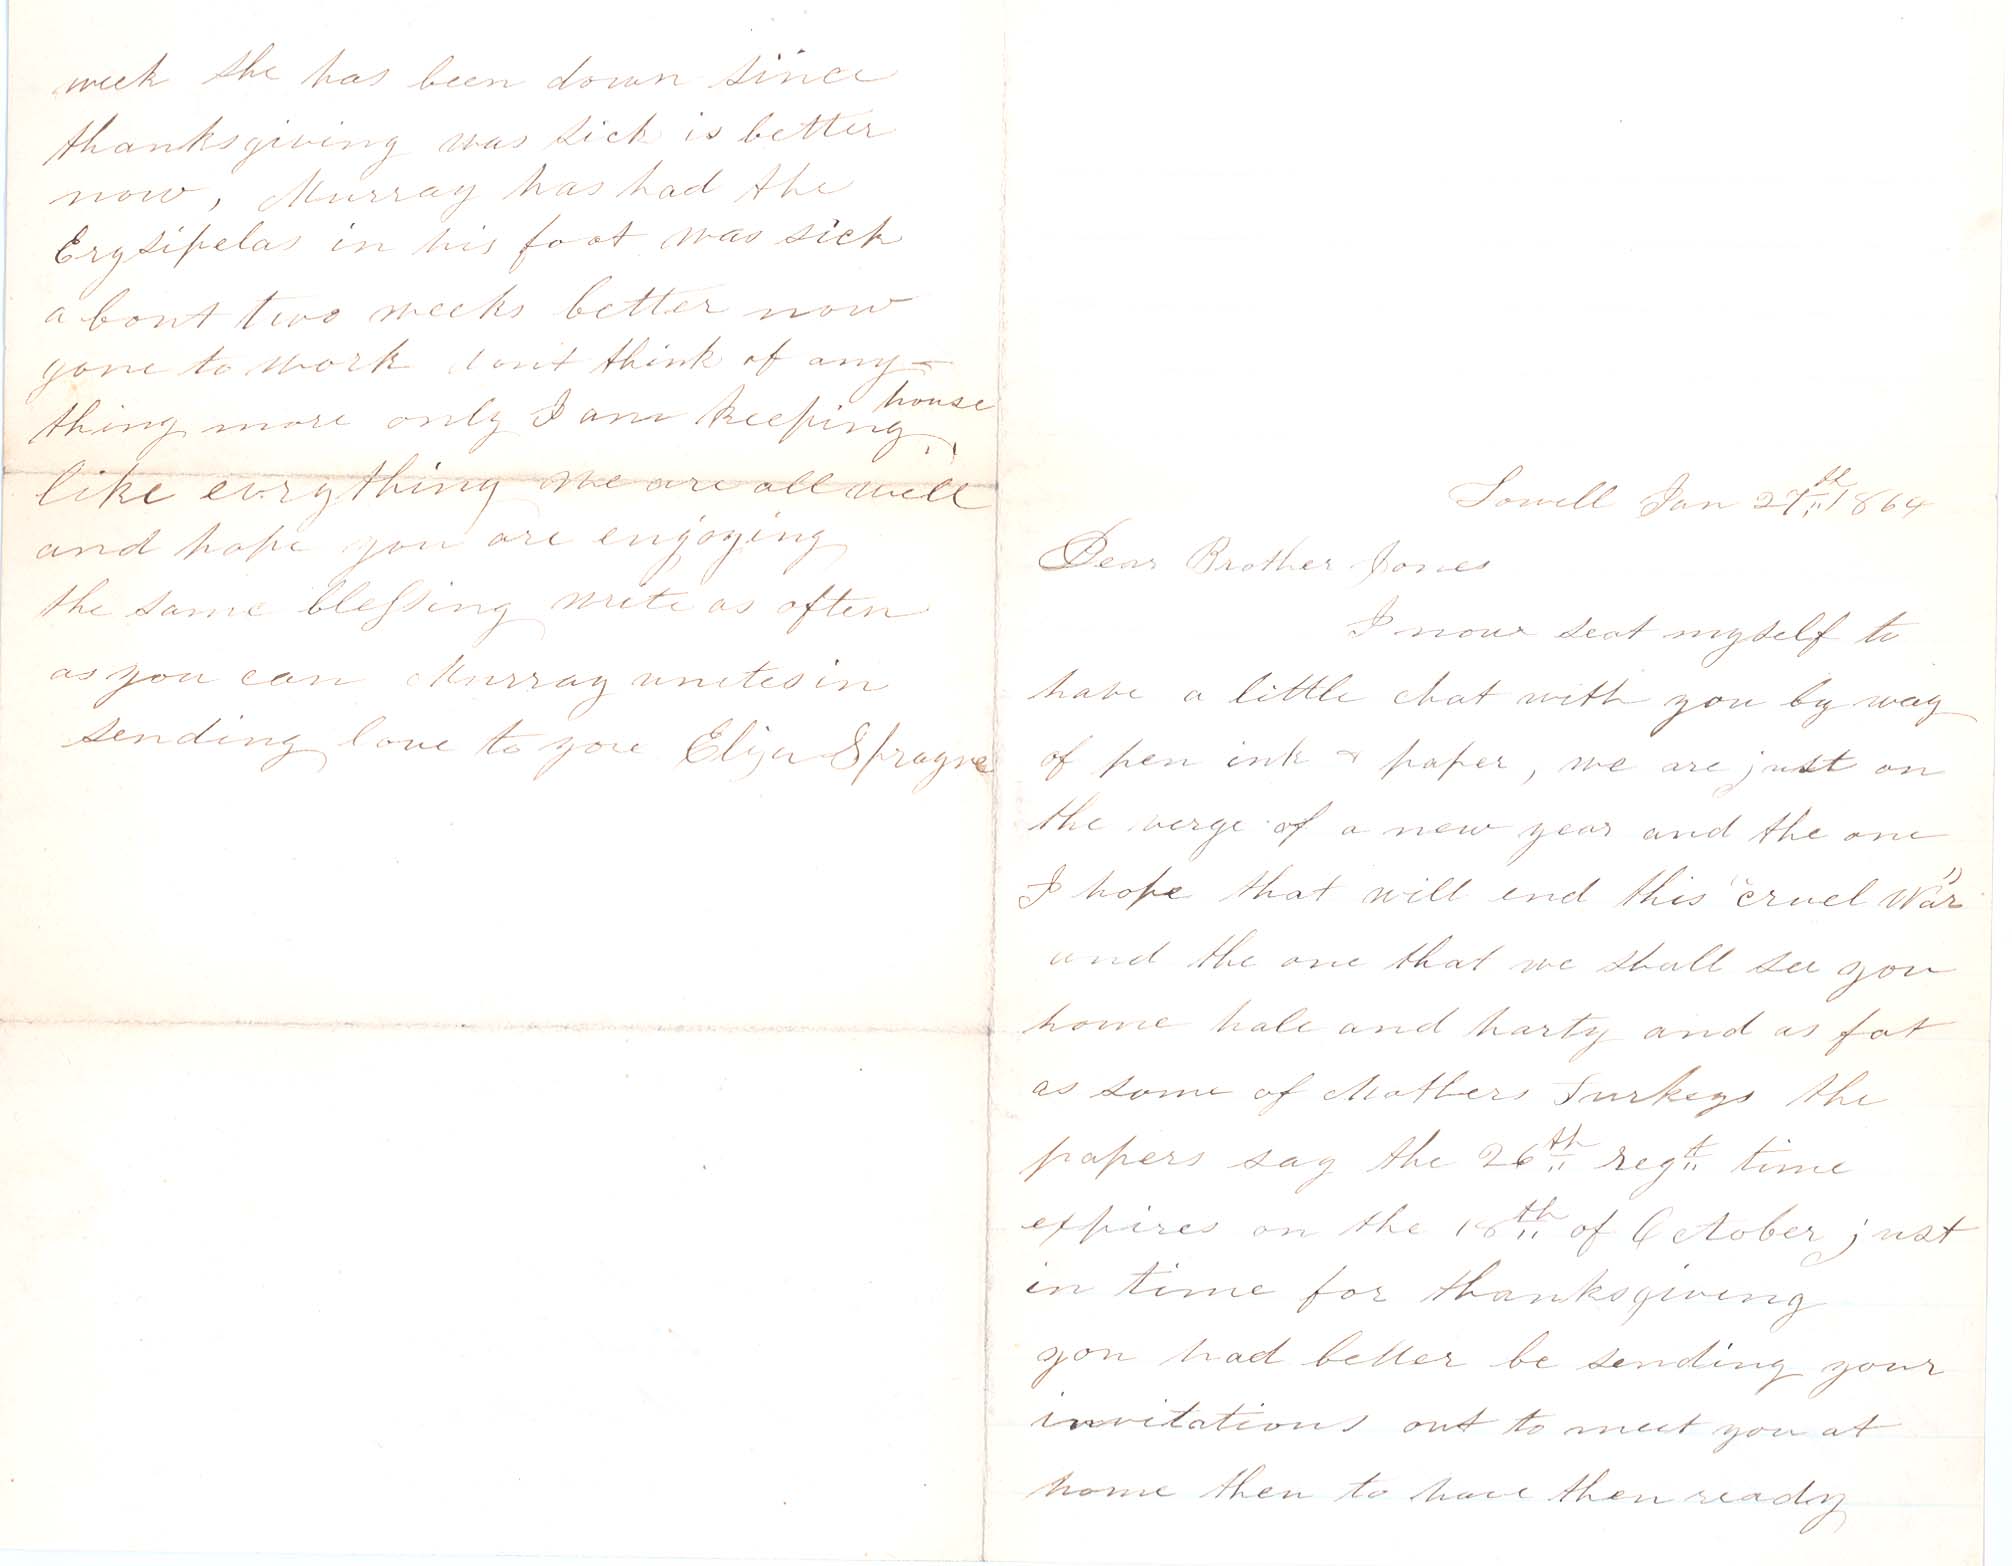 Lowell Jan 27th 1864
Dear Brother Jones
I now seat myself to
have a little chat with you by way
of pen ink & paper, we are just on
the verge of a new year and the one
I hope that will end this "cruel War"
and the one that we shall see you
home hale and harty and as fat
as some of Mothers Turkeys the
papers say the 26th regt time
expires on the 18th of October just
in time for thanksgiving
you had better be sending your
invitations out to meet you at
home then to have then ready
week she has been down since
thanksgiving was sick is better
now, Murray has had the
Erysipelas in his foot was sick
about two weeks better now
gone to work dont think of any-
thing more only I am keeping house
like evrything we are all well
and hope you are enjoying
the same blessing write as often
as you can Murray unites in
sending love to you Eliza Sprague